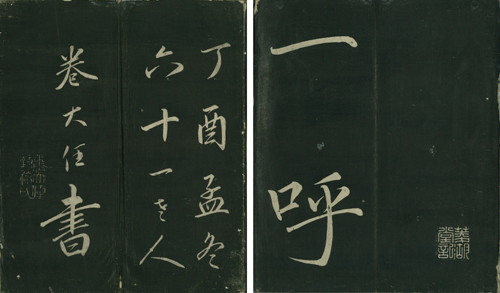 一呼
丁酉孟冬
六十一老人
卷大任書